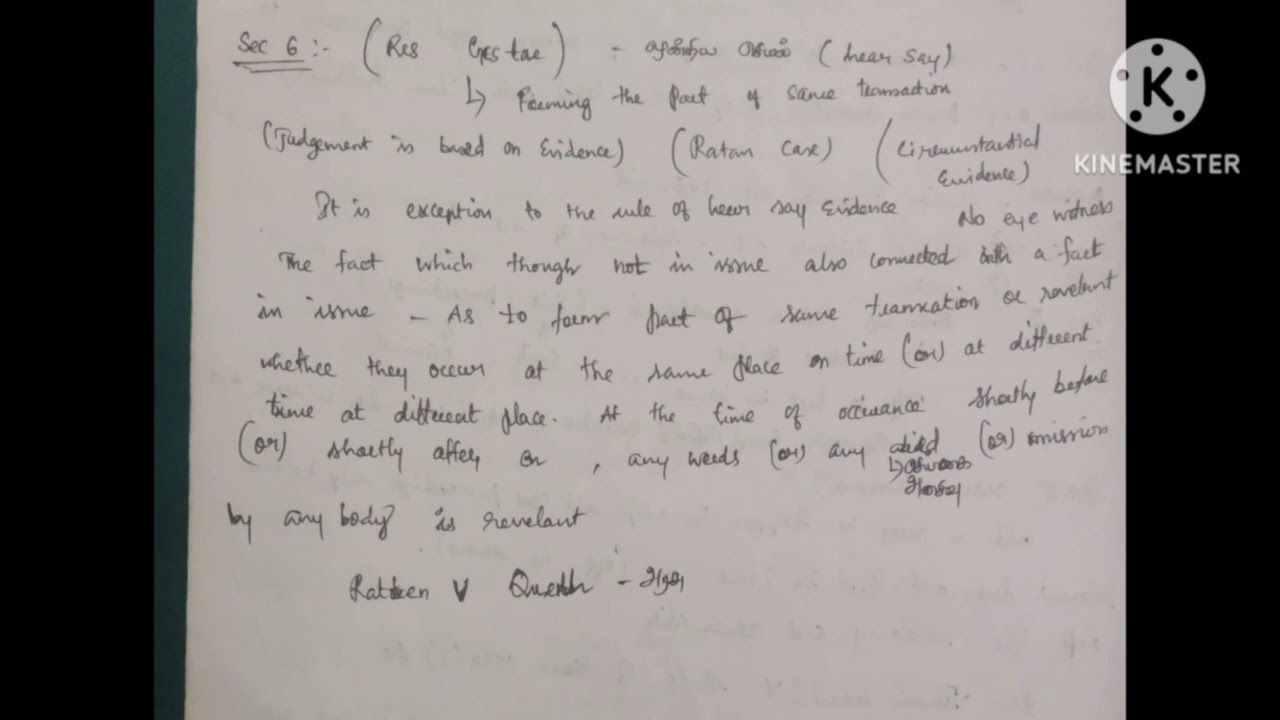 Sec 6 :- (Res Gestae) - (hear say)
↳ Forming the part of same transaction
(Judgement is based on Evidence) (Ratan Case) (Circumstantial Evidence)
It is exception to the rule of hear say Evidence No eye witness
The fact which though not in issue also connected with a fact
in issue - As to form part of same tranxation or revelant
whether they occur at the same place on time (or) at different
time at different place. At the time of occurance shortly before
(or) shortly after, or , any words (or) any (or) omission
by any body is revelant
Ratten V
K
KINEMASTER